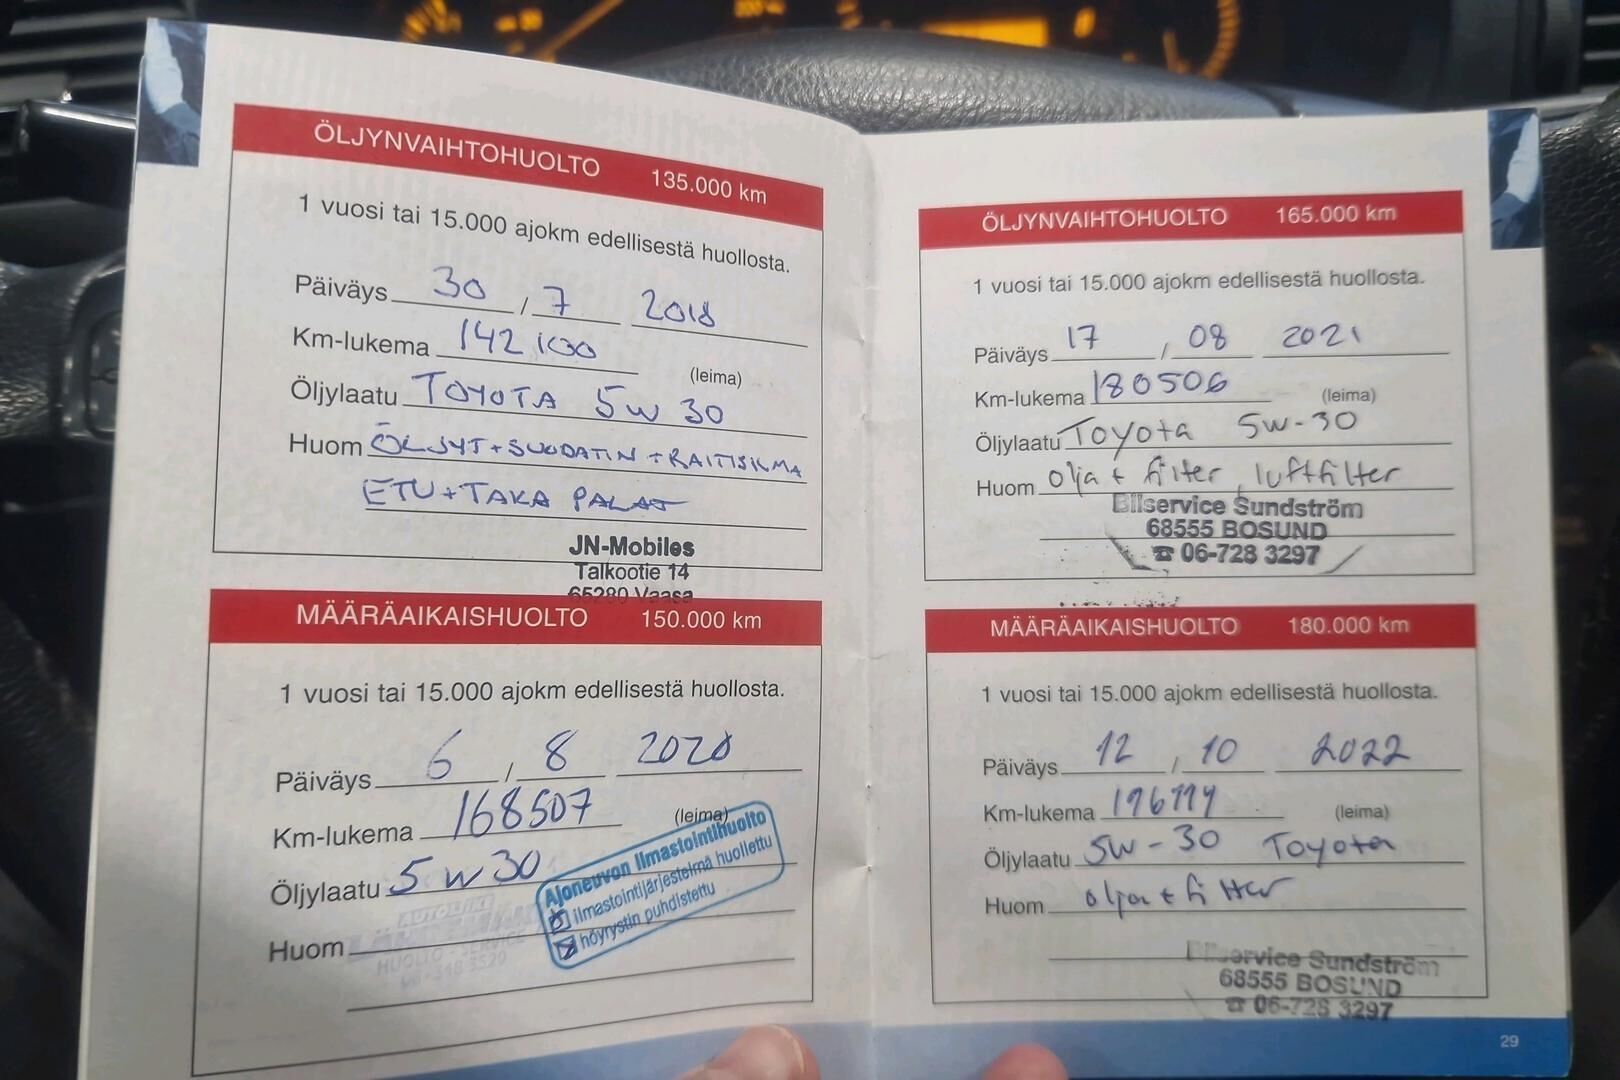 ÖLJYNVAIHTOHUOLTO 135.000 km
1 vuosi tai 15.000 ajokm edellisestä huollosta.
Päiväys 30 / 7 2018
Km-lukema 142 100
(leima)
Öljylaatu TOYOTA 5W 30
Huom ÖLJYT+SUODATIN+RAITISILMA
ETU+TAKA PALAT
JN-Mobiles
Talkootie 14
65280 Vaasa
MÄÄRÄAIKAISHUOLTO 150.000 km
1 vuosi tai 15.000 ajokm edellisestä huollosta.
Päiväys 6 / 8 2020
Km-lukema 168507
(leima)
Öljylaatu 5 W 30
Ajoneuvon ilmastointihuolto
ilmastointijärjestelmä huollettu
höyrystin puhdistettu
AUTOLIIKE
HUOLTO - SERVICE
Huom
ÖLJYNVAIHTOHUOLTO 165.000 km
1 vuosi tai 15.000 ajokm edellisestä huollosta.
Päiväys 17 / 08 2021
Km-lukema 180506 (leima)
Öljylaatu Toyota 5W-30
Huom olja + filter, luftfilter
Bilservice Sundström
68555 BOSUND
☎ 06-728 3297
MÄÄRÄAIKAISHUOLTO 180.000 km
1 vuosi tai 15.000 ajokm edellisestä huollosta.
Päiväys 12 / 10 2022
Km-lukema (leima)
Öljylaatu 5W-30 Toyota
Huom olja + filter
Bilservice Sundström
68555 BOSUND
☎ 06-728 3297
29